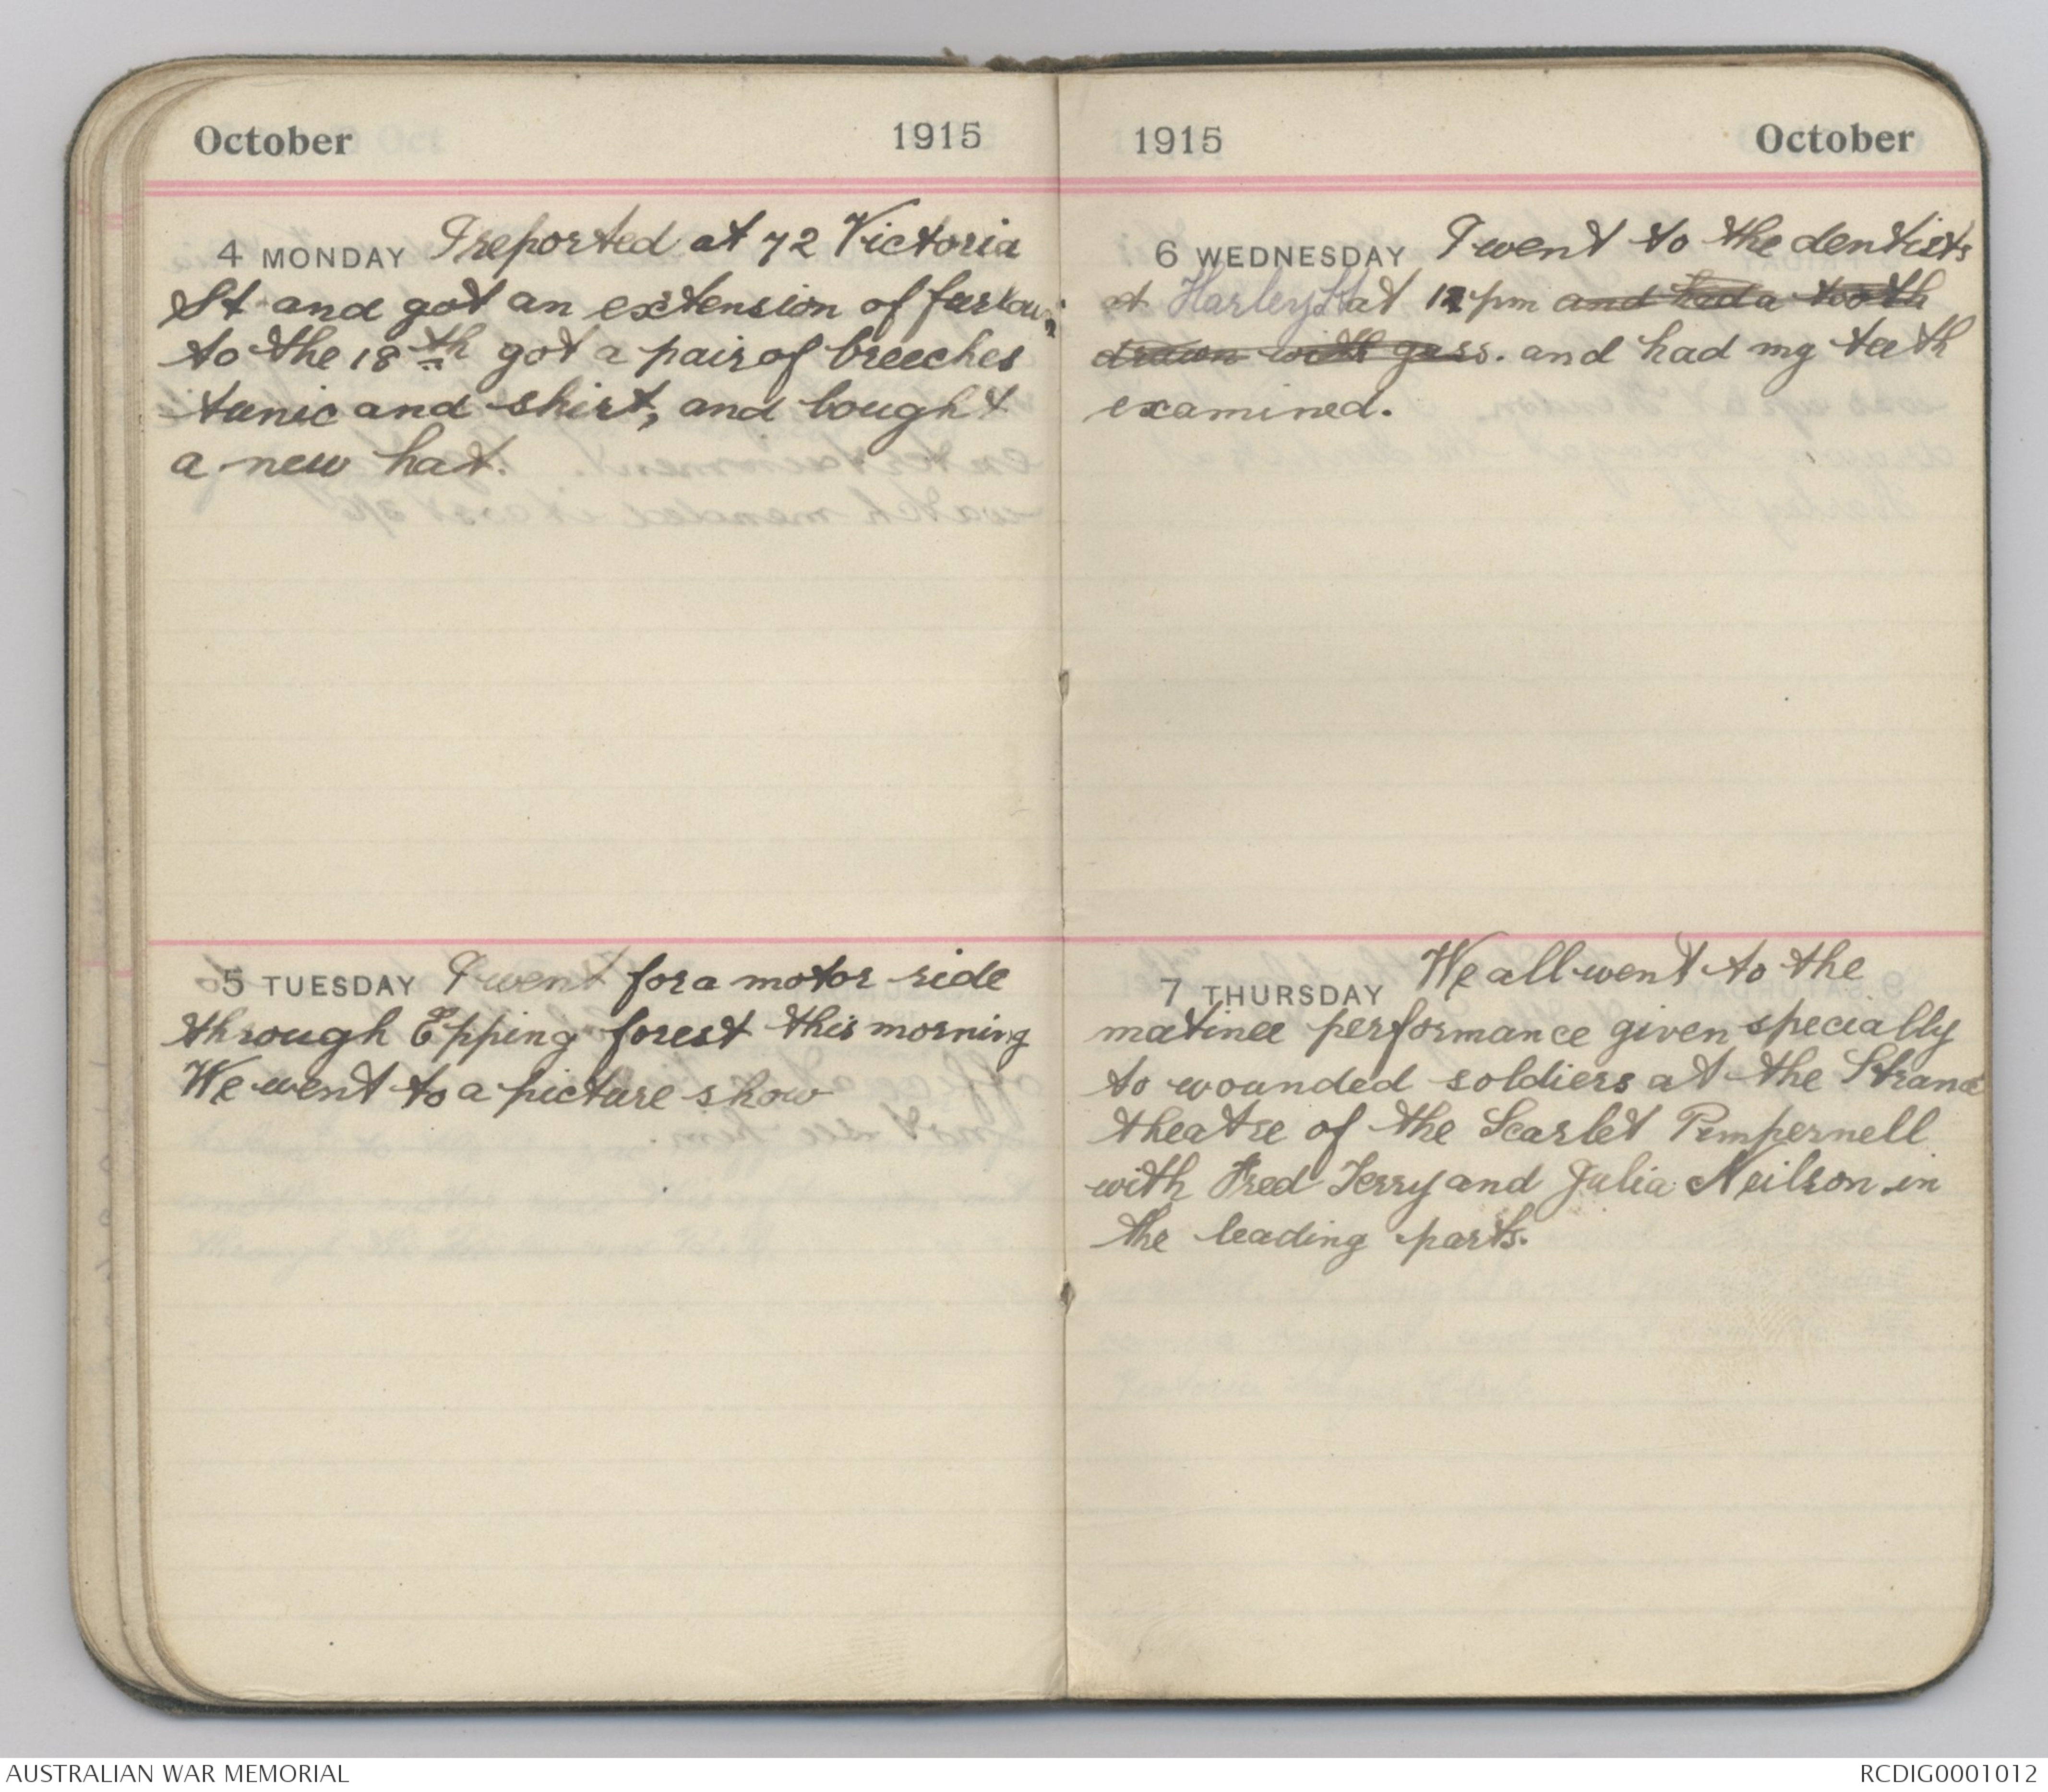 October 1915
4 MONDAY I reported at 72 Victoria
St and got an extension of furlow
to the 18th got a pair of breeches
tunic and shirt, and bought
a new hat.
5 TUESDAY I went for a motor ride
through Epping forest this morning
We went to a picture show
1915 October
6 WEDNESDAY I went to the dentists
at Harley St at 12 pm and had a tooth
drawn with gass. and had my teeth
examined.
7 THURSDAY We all went to the
matinee performance given specially
to wounded soldiers at the Strand
theatre of the Scarlet Pimpernell
with Fred Terry and Julia Neilson in
the leading parts.
AUSTRALIAN WAR MEMORIAL
RCDIG0001012